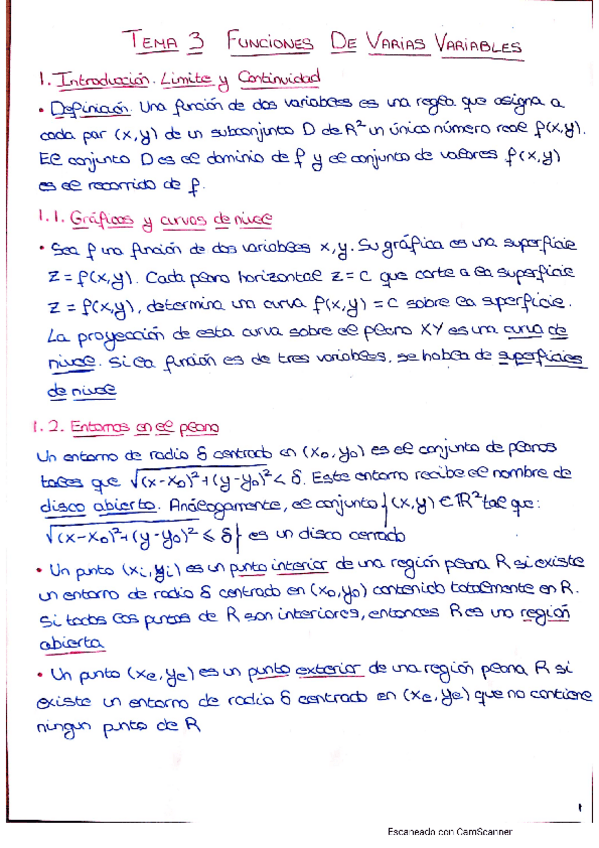 TEMA 3 FUNCIONES DE VARIAS VARIABLES
1. Introducción. Limite y Continuidad
• Definición. Una función de dos variables es una regla que asigna a
cada par (x,y) de un subconjunto D de R² un único número real f(x,y).
El conjunto D es el dominio de f y el conjunto de valores f(x,y)
es el recorrido de f.
1.1. Gráficas y curvas de nivel
• Sea f una función de dos variables x,y. Su gráfica es una superficie
z = f(x,y). Cada plano horizontal z = c que corte a la superficie
z = f(x,y), determina una curva f(x,y) = c sobre la superficie.
La proyección de esta curva sobre el plano XY es una curva de
nivel. Si la función es de tres variables, se habla de superficies
de nivel
1.2. Entornos en el plano
Un entorno de radio δ centrado en (x₀,y₀) es el conjunto de planos
tales que √(x-x₀)²+(y-y₀)² < δ. Este entorno recibe el nombre de
disco abierto. Análogamente, el conjunto {(x,y) ∈ ℝ² tal que:
√(x-x₀)²+(y-y₀)² ≤ δ} es un disco cerrado
• Un punto (xᵢ,yᵢ) es un punto interior de una región plana R si existe
un entorno de radio δ centrado en (x₀,y₀) contenido totalmente en R.
Si todos los puntos de R son interiores, entonces R es una región
abierta
• Un punto (xₑ,yₑ) es un punto exterior de una región plana R si
existe un entorno de radio δ centrado en (xₑ,yₑ) que no contiene
ningun punto de R
1
Escaneado con CamScanner